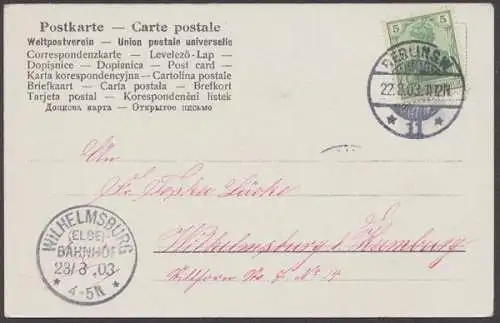 Postkarte — Carte postale
Weltpostverein — Union postale universelle
Correspondenzkarte — Levelező-Lap —
Dopisnice — Dopisnica — Post card —
Karta korespondencyjna — Cartolina postale
Briefkaart — Carta postala — Brefkort
Tarjeta postal — Korespondenční lístek
Допиcна карта — Открытое письмо
5 5
BERLIN S.W.
22.8.03.
* 11 *
An
Wilhelmsburg b/ Hamburg
No 14
WILHELMSBURG
(ELBE)
BAHNHOF
23/8.03
* 4-5N *